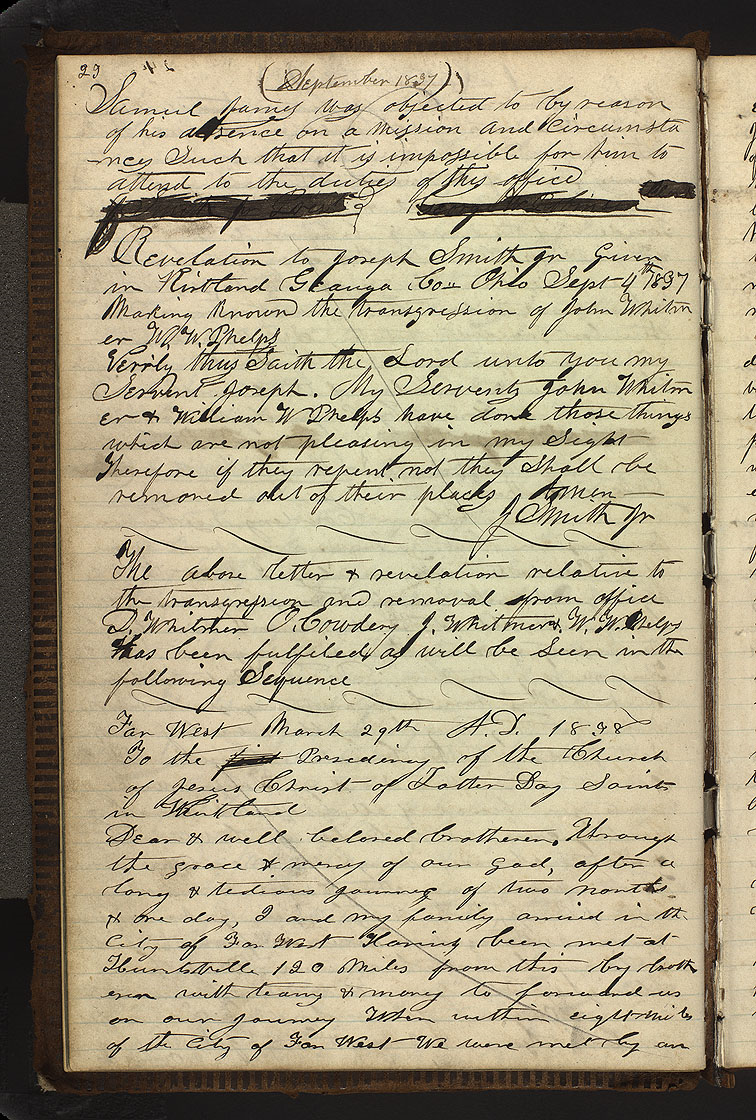 23
(September 1837)
Samuel James was objected to by reason
of his absence on a mission and circumsta
-nces Such that it is impossible for him to
attend to the duties of this office
Revelation to Joseph Smith Jr Given
in Kirtland Geauga Co. Ohio Sept 4th 1837
Making Known the transgression of John Whitm
er W. W. Phelps
Verily thus Saith the Lord unto you my
Servent Joseph. My Servents John Whitm
er & William W Phelps have done those things
which are not pleasing in my Sight
Therefore if they repent not they Shall be
removed out of their places Amen—
J Smith Jr
The above letter & revelation relative to
the transgression and removal from office
D. Whitmer O. Cowdery J. Whitmer & W. W. Phelps
has been fulfiled as will be Seen in the
following Sequence
Far West March 29th A.D. 1838
To the Presidency of the Church
of Jesus Christ of Latter Day Saints
in Kirtland
Dear & well beloved brotheren. Through
the grace & mercy of our God, after a
long & tedious journey of two months
& one day, I and my family arrived in the
City of Far West Having been met at
Huntsville 120 Miles from this by broth
eren with teams & money to forward us
on our journey When within eight miles
of the City of Far West We were met by an